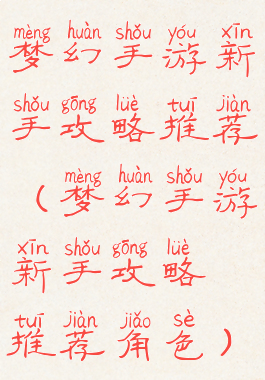 mèng huàn shǒu yóu xīn
梦幻手游新
shǒu gōng lüè tuī jiàn
手攻略推荐
mèng huàn shǒu yóu
（梦幻手游
xīn shǒu gōng lüè
新手攻略
tuī jiàn jiǎo sè
推荐角色）